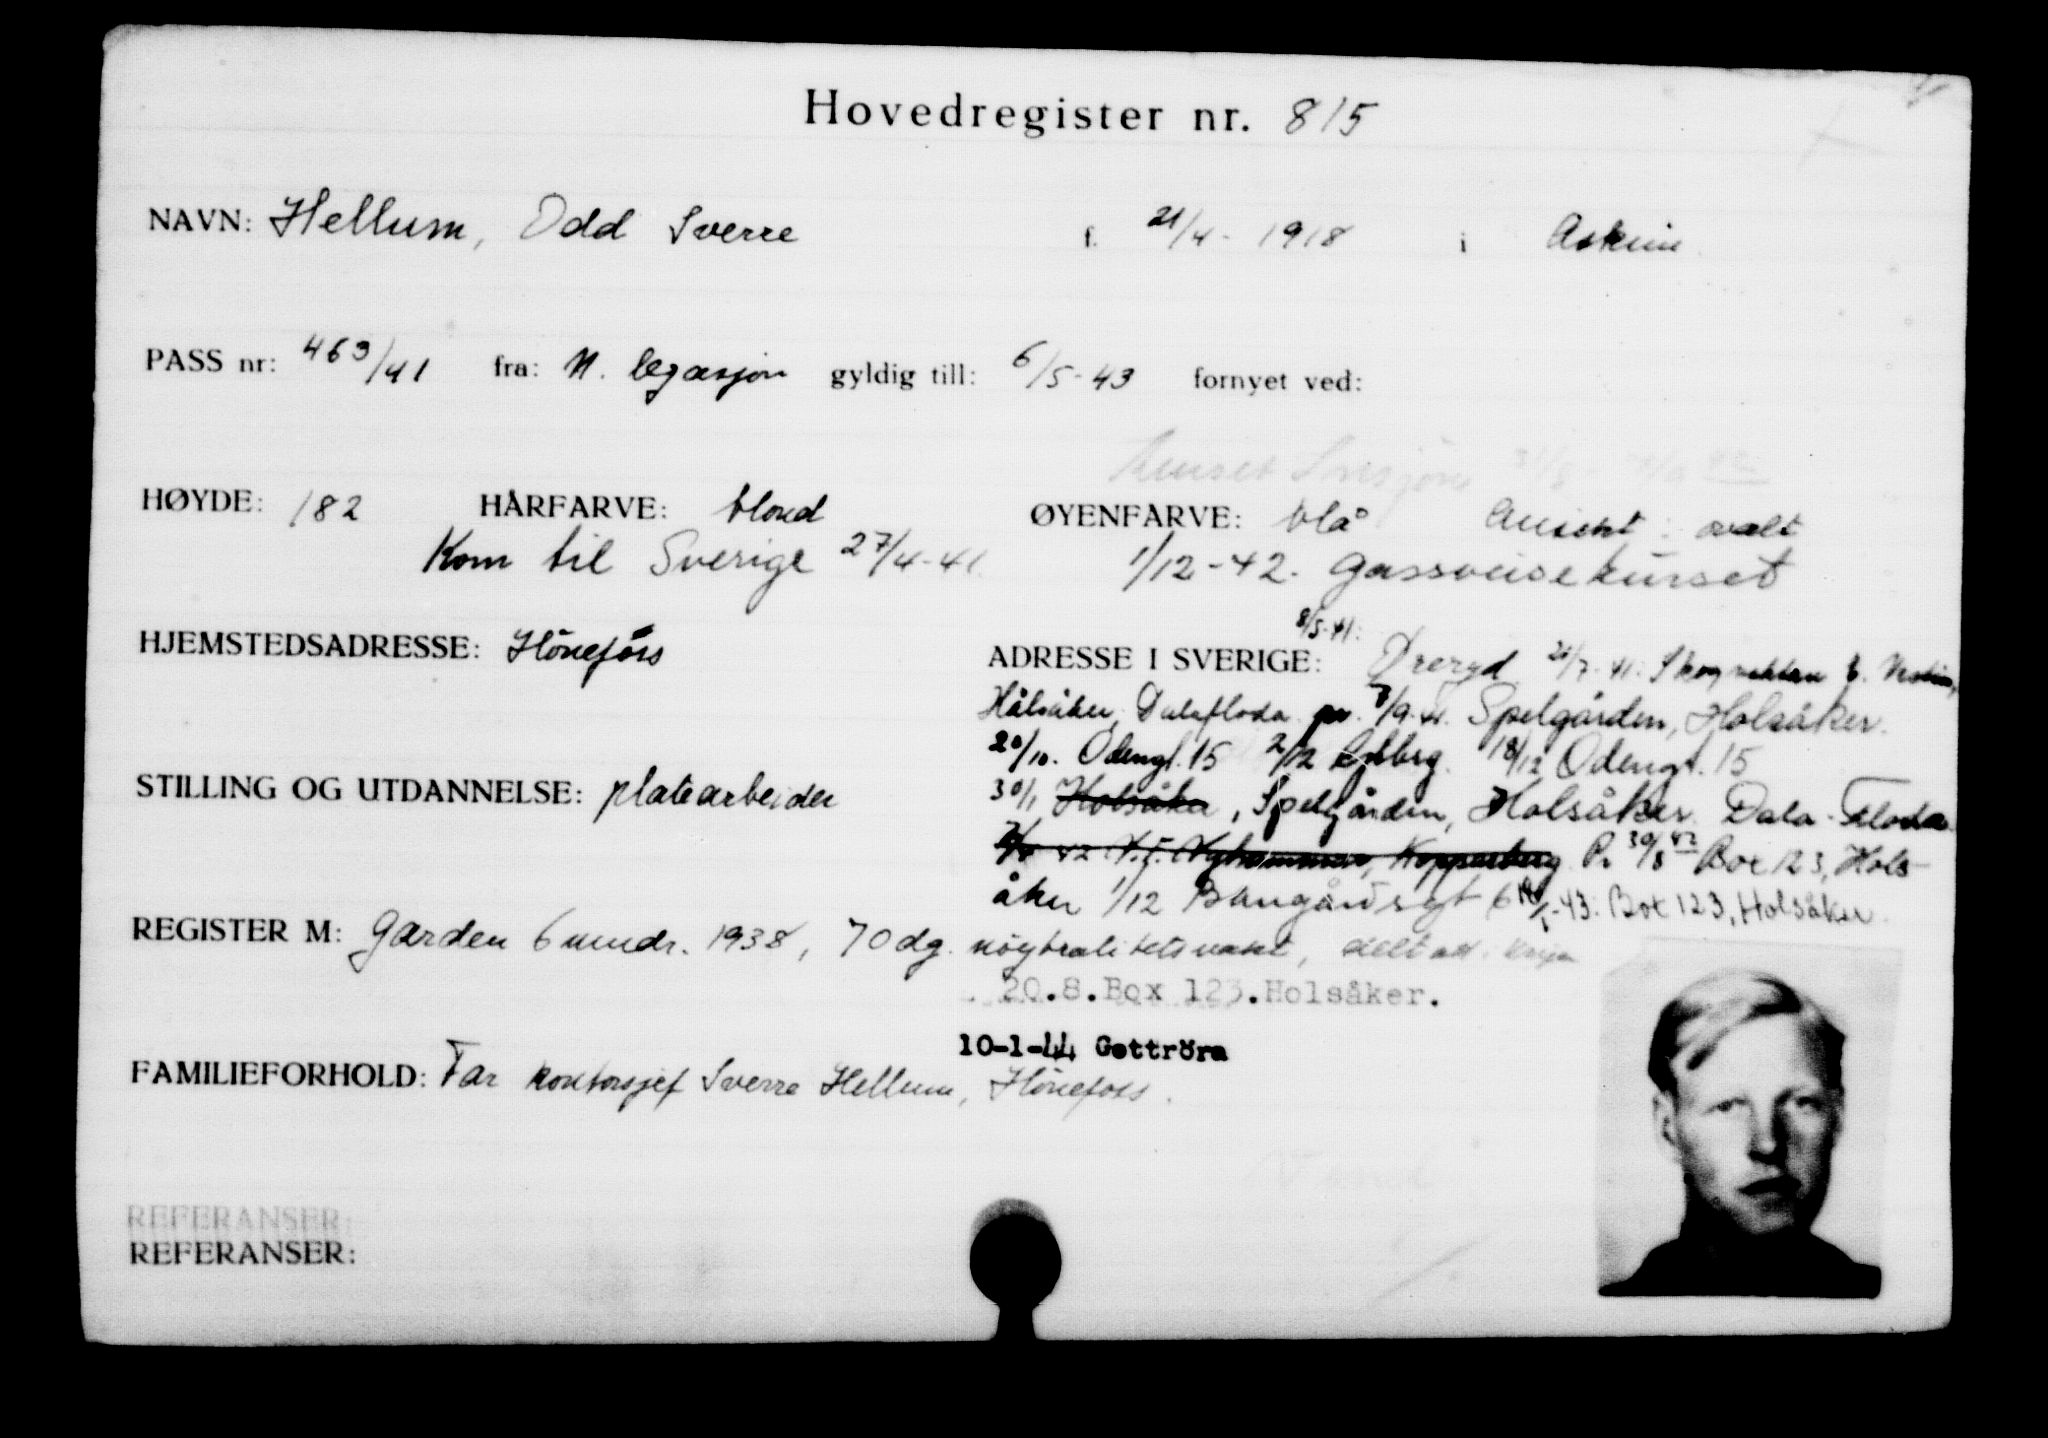 Hovedregister nr. 815
NAVN: Hellum, Odd Sverre f. 21/4-1918 i Askim
PASS nr: 463/41 fra: N. legasjon gyldig till: 6/5-43 fornyet ved:
Kurset
HØYDE: 182 HÅRFARVE: blond ØYENFARVE: blå Ansikt: ovalt
Kom til Sverige 27/4-41. 1/12-42. Gassveisekurset
8/5-41:
HJEMSTEDSADRESSE: Hönefoss ADRESSE I SVERIGE: Öreryd 21/7-41:
Hålsåker, Dalafloda pr. 7/9-41. Spelgården, Holsåker.
20/10. Odengt. 15 2/12 18/12 Odengt. 15
STILLING OG UTDANNELSE: platearbeider 30/1 Holsåker, Spelgården, Holsåker Dala-Floda
42 Nyhammar, Kopparberg Pr 30/8 42 Box 123, Hols-
åker 1/12 6 43: Box 123, Holsåker.
REGISTER M: Garden 6 mndr. 1938, 70 dg. nöytralitetsvakt, deltatt i krigen
20.8.Box 123.Holsåker.
10-1-44 Gottröra
FAMILIEFORHOLD: Far kontorsjef Sverre Hellum, Hönefoss.
REFERANSER:
REFERANSER: